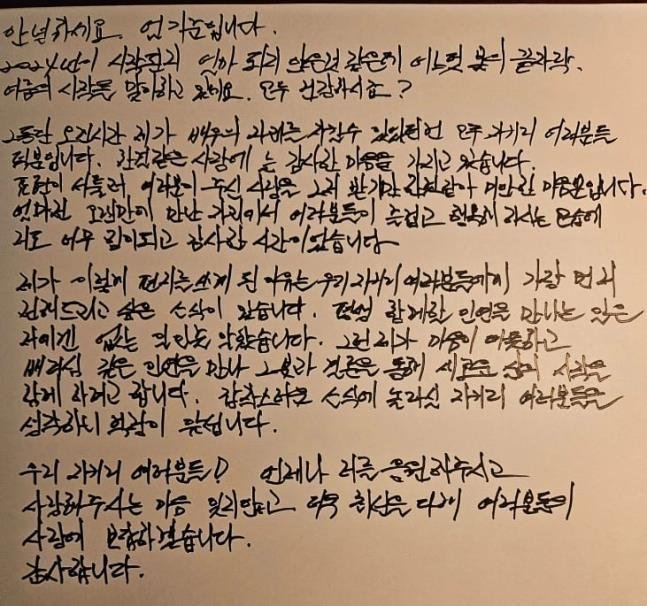 안녕하세요. 엄기준입니다.
2024년이 시작된지 얼마 되지 않은것 같은데 어느덧 봄의 끝자락.
여름의 시작을 맞이하고 있네요. 모두 건강하시죠?
그동안 오랜시간 제가 배우의 자리를 지킬수 있었던건 모두 지키리 여러분들
덕분입니다. 한결같은 사랑에 늘 감사한 마음을 가지고 있습니다.
표현이 서툴러, 여러분이 주신 사랑을 그저 받기만 한것같아 미안한 마음뿐입니다.
얼마전 오랜만에 만난 자리에서 여러분들이 즐겁고 행복해 하시는 모습에
저도 너무 힘이되고 감사한 시간이었습니다
제가 이렇게 편지를 쓰게 된 이유는 우리 지키리 여러분들께 가장 먼저
전해드리고 싶은 소식이 있습니다. 평생 함께할 인연을 만나는 일은
저에겐 없는 일인줄 알았습니다. 그런 제가 마음이 따뜻하고
배려심 깊은 인연을 만나 그분과 결혼을 통해 새로운 삶의 시작을
함께 하려고 합니다. 갑작스러운 소식에 놀라실 지키리 여러분들을
생각하니 걱정이 앞섭니다.
우리 지키리 여러분들! 언제나 저를 응원해주시고
사랑해주시는 마음 잊지않고 더욱 최선을 다해 여러분들의
사랑에 보답하겠습니다.
감사합니다.